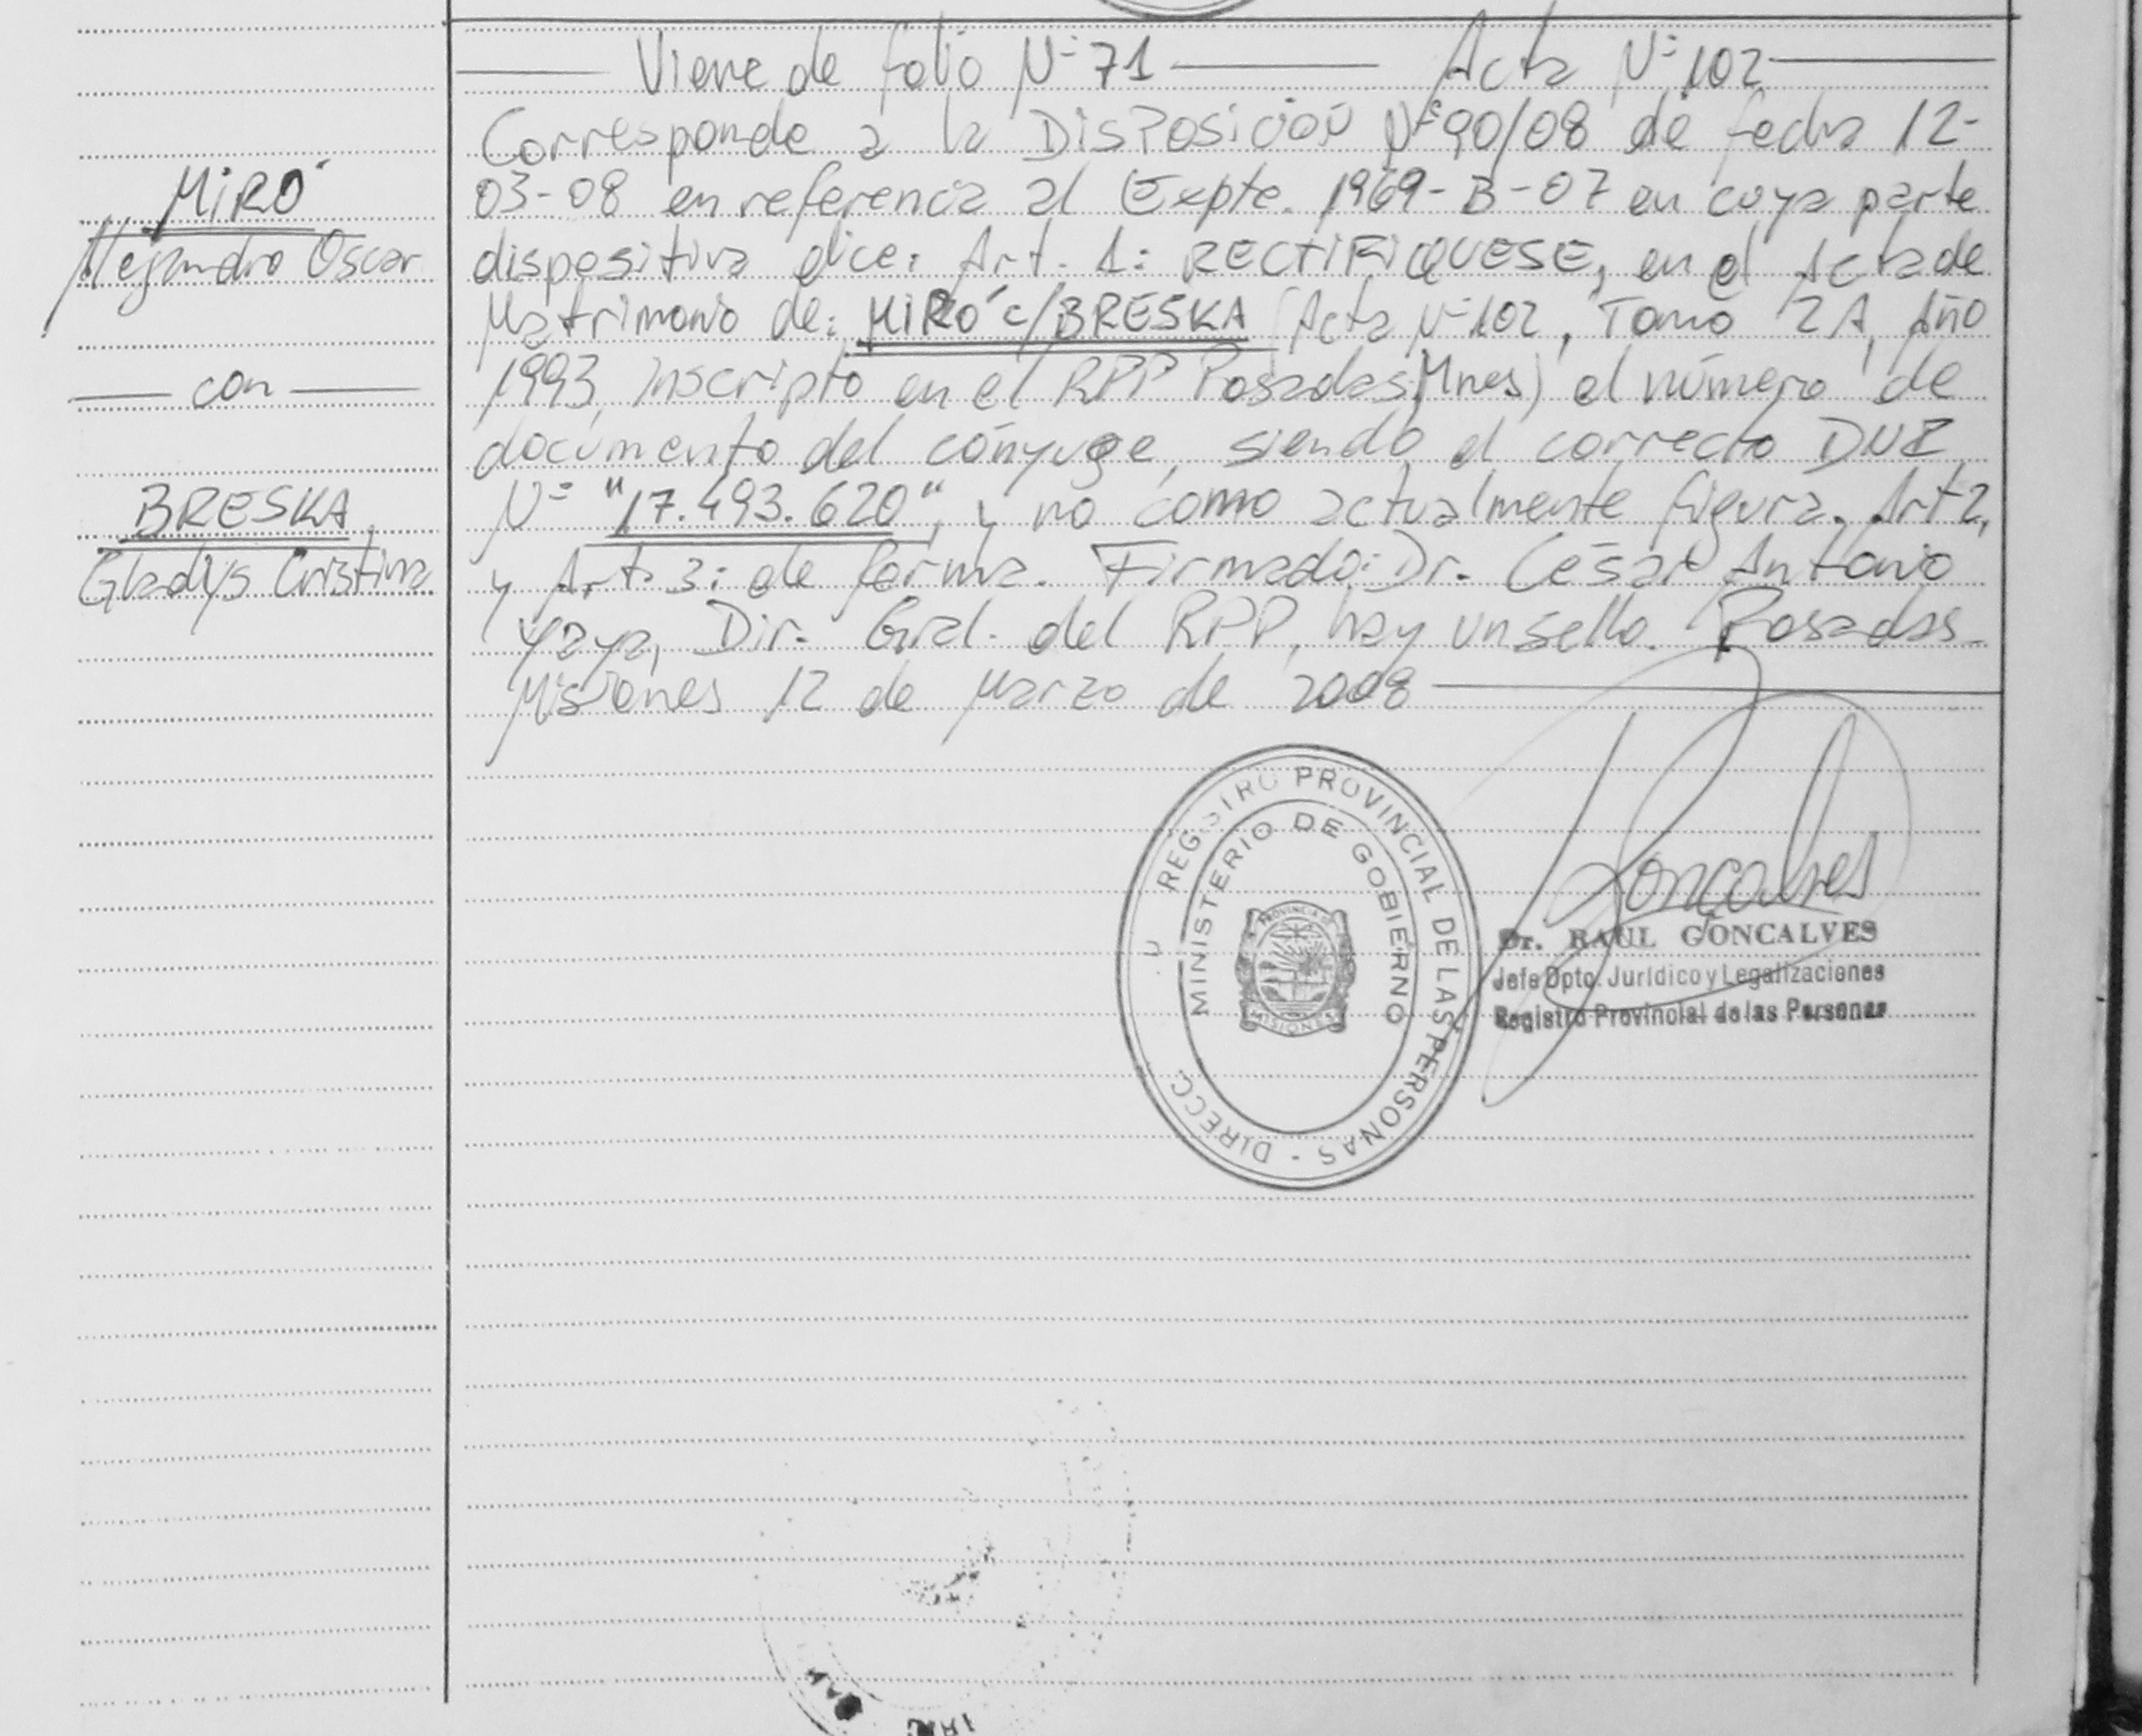 Viene de folio Nº 71 Acta Nº 102
Corresponde a la DISPOSICIÓN Nº 90/08 de fecha 12-
03-08 en referencia al Expte. 1969-B-07 en cuya parte
dispositiva dice: Art. 1: RECTIFIQUESE, en el Acta de
Matrimonio de: MIRÓ c/BRESKA (Acta Nº 102, Tomo 2A, Año
1993, Inscripto en el RPP Posadas, Mnes) el número de
documento del cónyuge, siendo el correcto DNI
Nº "17.493.620", y no como actualmente figura. Art 2,
y Art. 3: de forma. Firmado: Dr. César Antonio
Yaya, Dir. Gral. del RPP, hay un sello. Posadas
Misiones 12 de Marzo de 2008
MIRÓ
Alejandro Oscar
con
BRESKA
Gladys Cristina
REGISTRO PROVINCIAL DE LAS PERSONAS - DIRECC.
MINISTERIO DE GOBIERNO
PROVINCIA DE
MISIONES
Goncalves
Dr. RAUL GONCALVES
Jefe Dpto. Jurídico y Legalizaciones
Registro Provincial de las Personas